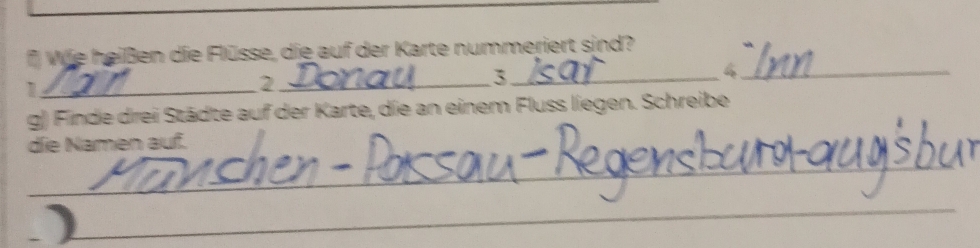 f) Wie heißen die Flüsse, die auf der Karte nummeriert sind?
1. Main 2. Donau 3. Isar 4. Inn
g) Finde drei Städte auf der Karte, die an einem Fluss liegen. Schreibe
die Namen auf.
München - Passau - Regensburg - augsbur